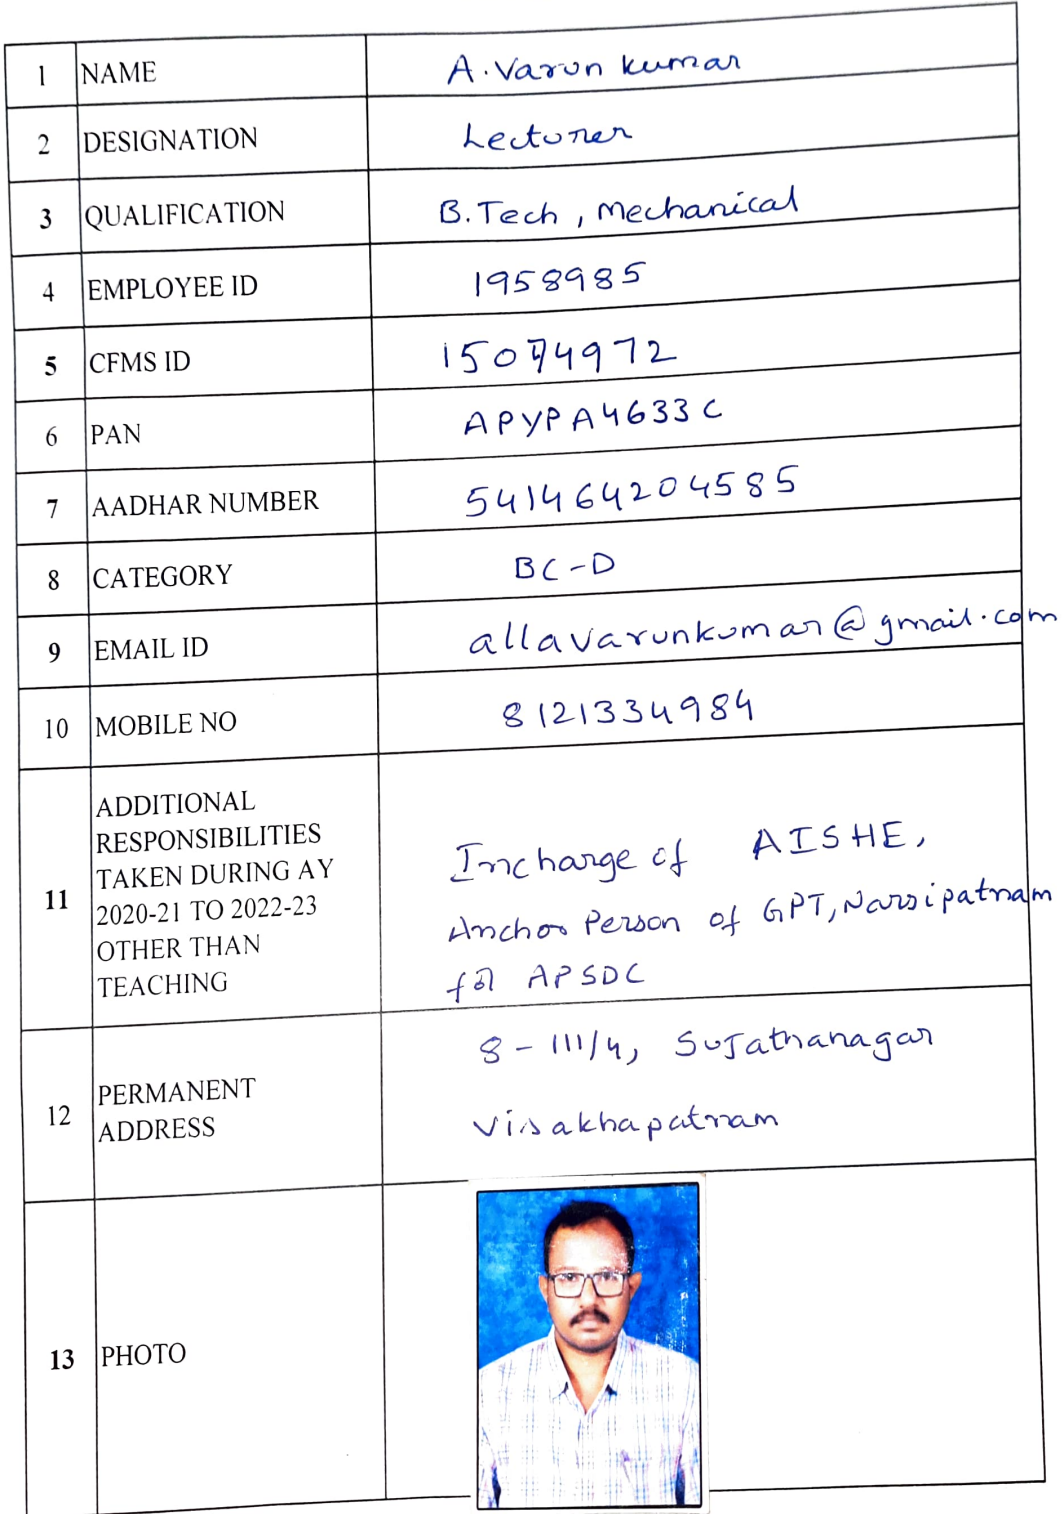 1 NAME A. Varun kumar
2 DESIGNATION Lecturer
3 QUALIFICATION B.Tech, Mechanical
4 EMPLOYEE ID 1958985
5 CFMS ID 15074972
6 PAN APYPA4633C
7 AADHAR NUMBER 541464204585
8 CATEGORY BC-D
9 EMAIL ID allavarunkumar@gmail.com
10 MOBILE NO 8121334984
11 ADDITIONAL
RESPONSIBILITIES
TAKEN DURING AY
2020-21 TO 2022-23
OTHER THAN
TEACHING
Incharge of AISHE,
Anchor Person of GPT, Narsipatnam
for APSDC
12 PERMANENT
ADDRESS
8-111/4, Sujathanagar
Visakhapatnam
13 PHOTO